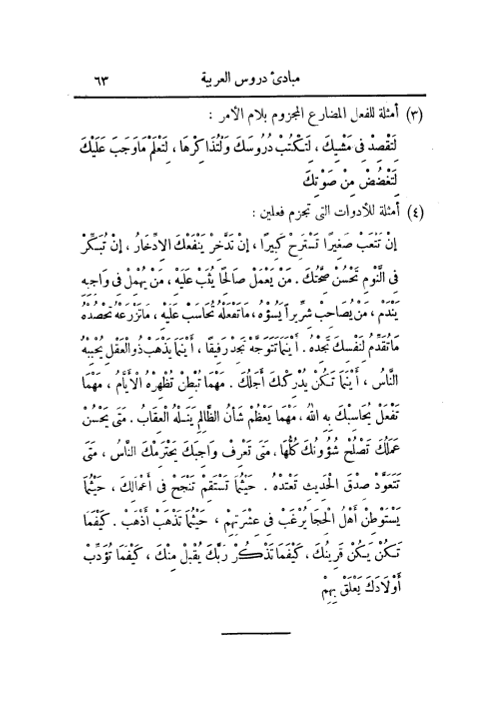 مبادئ دروس العربية ٦٣
(٣) أمثلة للفعل المضارع المجزوم بلام الأمر :
لِتَقْصِدْ فِى مَشْيِكَ ، لِتَكْتُبْ دُرُوسَكَ وَلْتُذَاكِرْهَا ، لِتَعْلَمْ مَاوَجَبَ عَلَيْكَ
لِتَغْضُضْ مِنْ صَوْتِكَ
(٤) أمثلة للأدوات التى تجزم فعلين :
إِنْ تَتْعَبْ صَغِيرًا تَسْتَرِحْ كَبِيرًا ، إِنْ تَدَّخِرْ يَنْفَعْكَ الِادِّخَارُ ، إِنْ تُبَكِّرْ
فِى النَّوْمِ تَحْسُنْ صِحَّتُكَ . مَنْ يَعْمَلْ صَالِحًا يُثَبْ عَلَيْهِ ، مَنْ يُهْمِلْ فِى وَاجِبِهِ
يَنْدَمْ ، مَنْ يُصَاحِبْ شِرِّيراً يَسُؤْهُ ، مَاتَفْعَلْهُ تُحَاسَبْ عَلَيْهِ ، مَاتَزْرَعْهُ تَحْصُدْهُ
مَاتُقَدِّمْ لِنَفْسِكَ تَجِدْهُ . أَيْنَمَا تَتَوَجَّهْ تَجِدْ رَفِيقًا ، أَيْنَمَا يَذْهَبْ ذُوالْعَقْلِ يُحْبِبْهُ
النَّاسُ ، أَيْنَمَا تَكُنْ يُدْرِكْكَ أَجَلُكَ . مَهْمَا تُبْطِنْ تُظْهِرْهُ الْأَيَّامُ ، مَهْمَا
تَفْعَلْ يُحَاسِبْكَ بِهِ اللهُ ، مَهْمَا يَعْظُمْ شَأْنُ الظَّالِمِ يَنَلْهُ الْعِقَابُ . مَتَى يَحْسُنْ
عَمَلُكَ تَصْلُحْ شُؤُونُكَ كُلُّهَا ، مَتَى تَعْرِفْ وَاجِبَكَ يَحْتَرِمْكَ النَّاسُ ، مَتَى
تَتَعَوَّدْ صِدْقَ الْحَدِيثِ تَعْتَدْهُ . حَيْثُمَا تَسْتَقِمْ تَنْجَحْ فِى أَعْمَالِكَ ، حَيْثُمَا
يَسْتَوْطِنْ أَهْلُ الْحِجَا يُرْغَبْ فِى عِشْرَتِهِمْ ، حَيْثُمَا تَذْهَبْ أَذْهَبْ . كَيْفَمَا
تَكُنْ يَكُنْ قَرِينُكَ ، كَيْفَمَا تَذْكُرْ رَبَّكَ يُقْبَلْ مِنْكَ ، كَيْفَمَا تُؤَدِّبْ
أَوْلَادَكَ يَعْلَقْ بِهِمْ